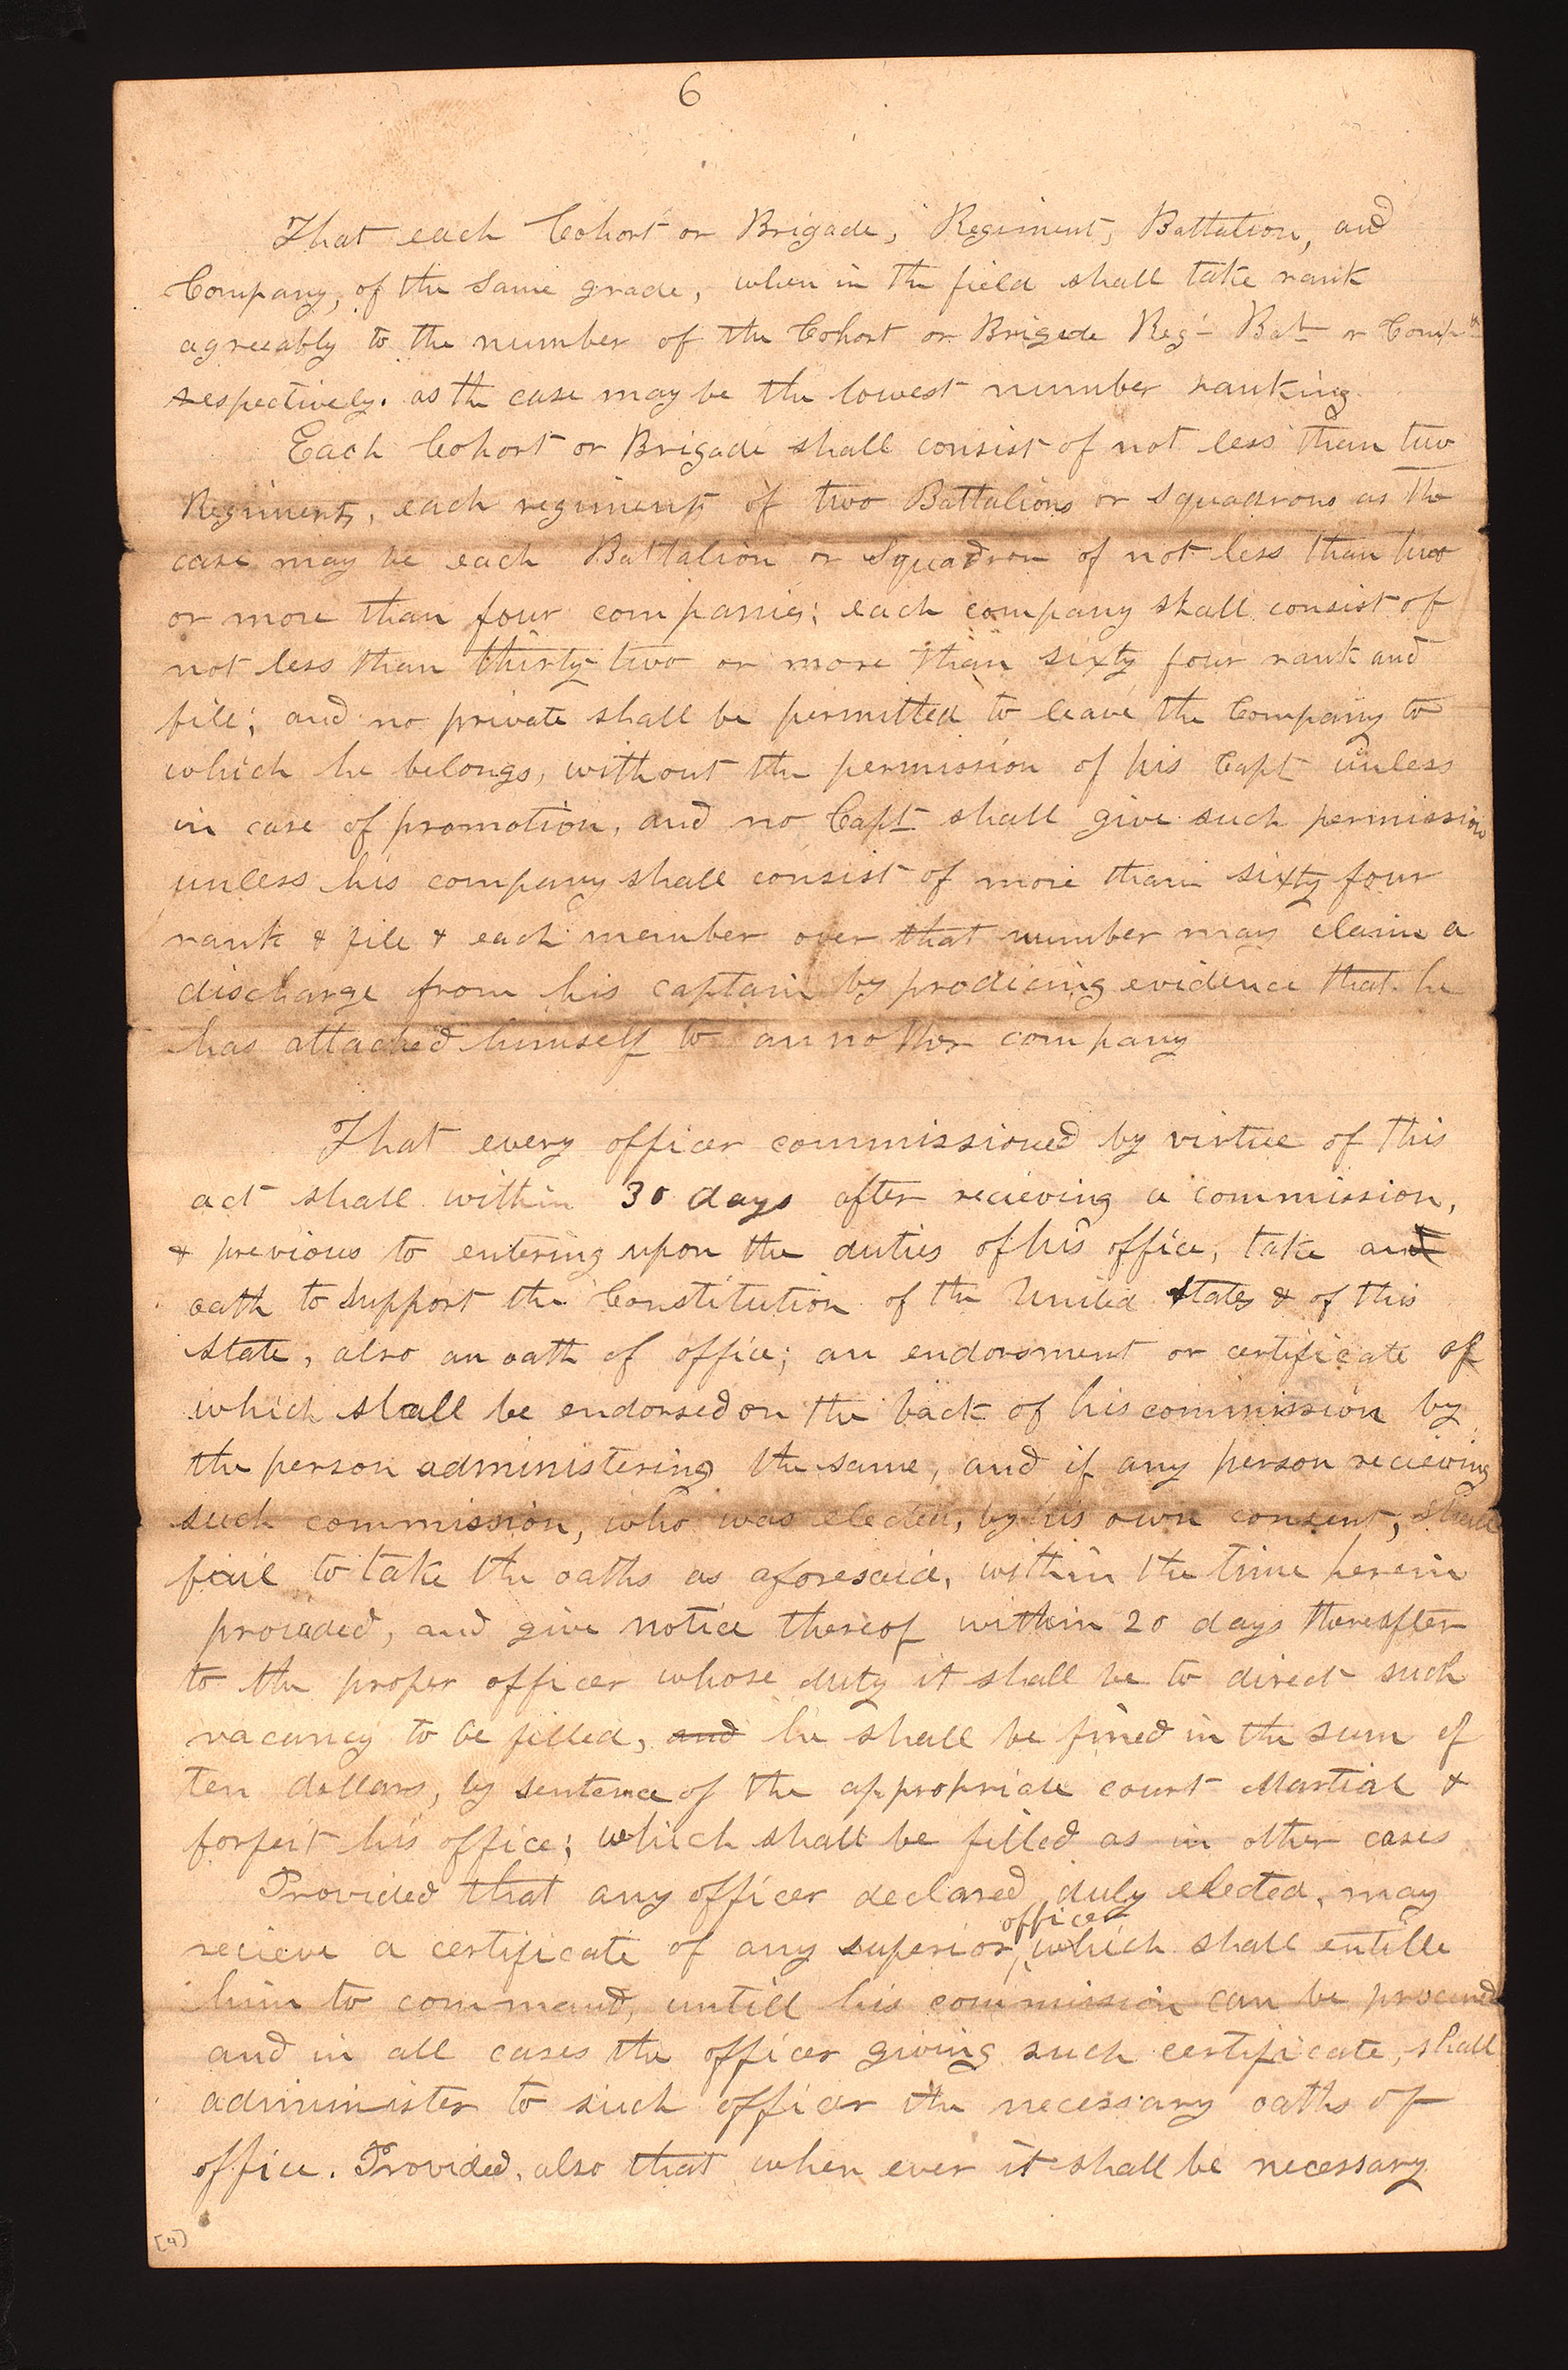 6
That each Cohort or Brigade, Regiment, Battalion, and
Company, of the same grade, when in the field shall take rank
agreeably to the number of the Cohort or Brigade Regt Bat or Comp
respectively. as the case may be the lowest number ranking.
Each Cohort or Brigade shall consist of not less than two
Regiments, each regiment of two Battalions or squadrons as the
case may be each Battalion or Squadron of not less than two
or more than four companies; each company shall consist of
not less than thirty-two or more than sixty four rank and
file; and no private shall be permitted to leave the Company to
which he belongs, without the permission of his Capt unless
in case of promotion, and no Capt shall give such permission
unless his company shall consist of more than sixty four
rank & file & each member over that number may claim a
discharge from his captain by prodicing evidence that he
has attached himself to annother company
That every officer commissioned by virtue of this
act shall within 30 days after recieving a commission,
& previous to entering upon the duties of his office, take and
oath to support the Constitution of the United States & of this
State, also an oath of office; an endorsment or certificate of
which shall be endorsed on the back of his commission by
the person administering the same, and if any person recieving
such commission, who was elected, by his own consent, shall
fail to take the oaths as aforesaid, within the time herein
provided, and give notice thereof within 20 days thereafter
to the proper officer whose duty it shall be to direct such
vacancy to be filled, and he shall be fined in the sum of
ten dollars, by sentence of the appropriate court Martial &
forfeit his office; which shall be filled as in other cases
Provided that any officer declared duly elected, may
officer
recieve a certificate of any superior, which shall entille
him to command, untill his commission can be procured
and in all cases the officer giving such certificate, shall
administer to such officer the necessary oaths of
office. Provided, also that when ever it shall be necessary
[4]